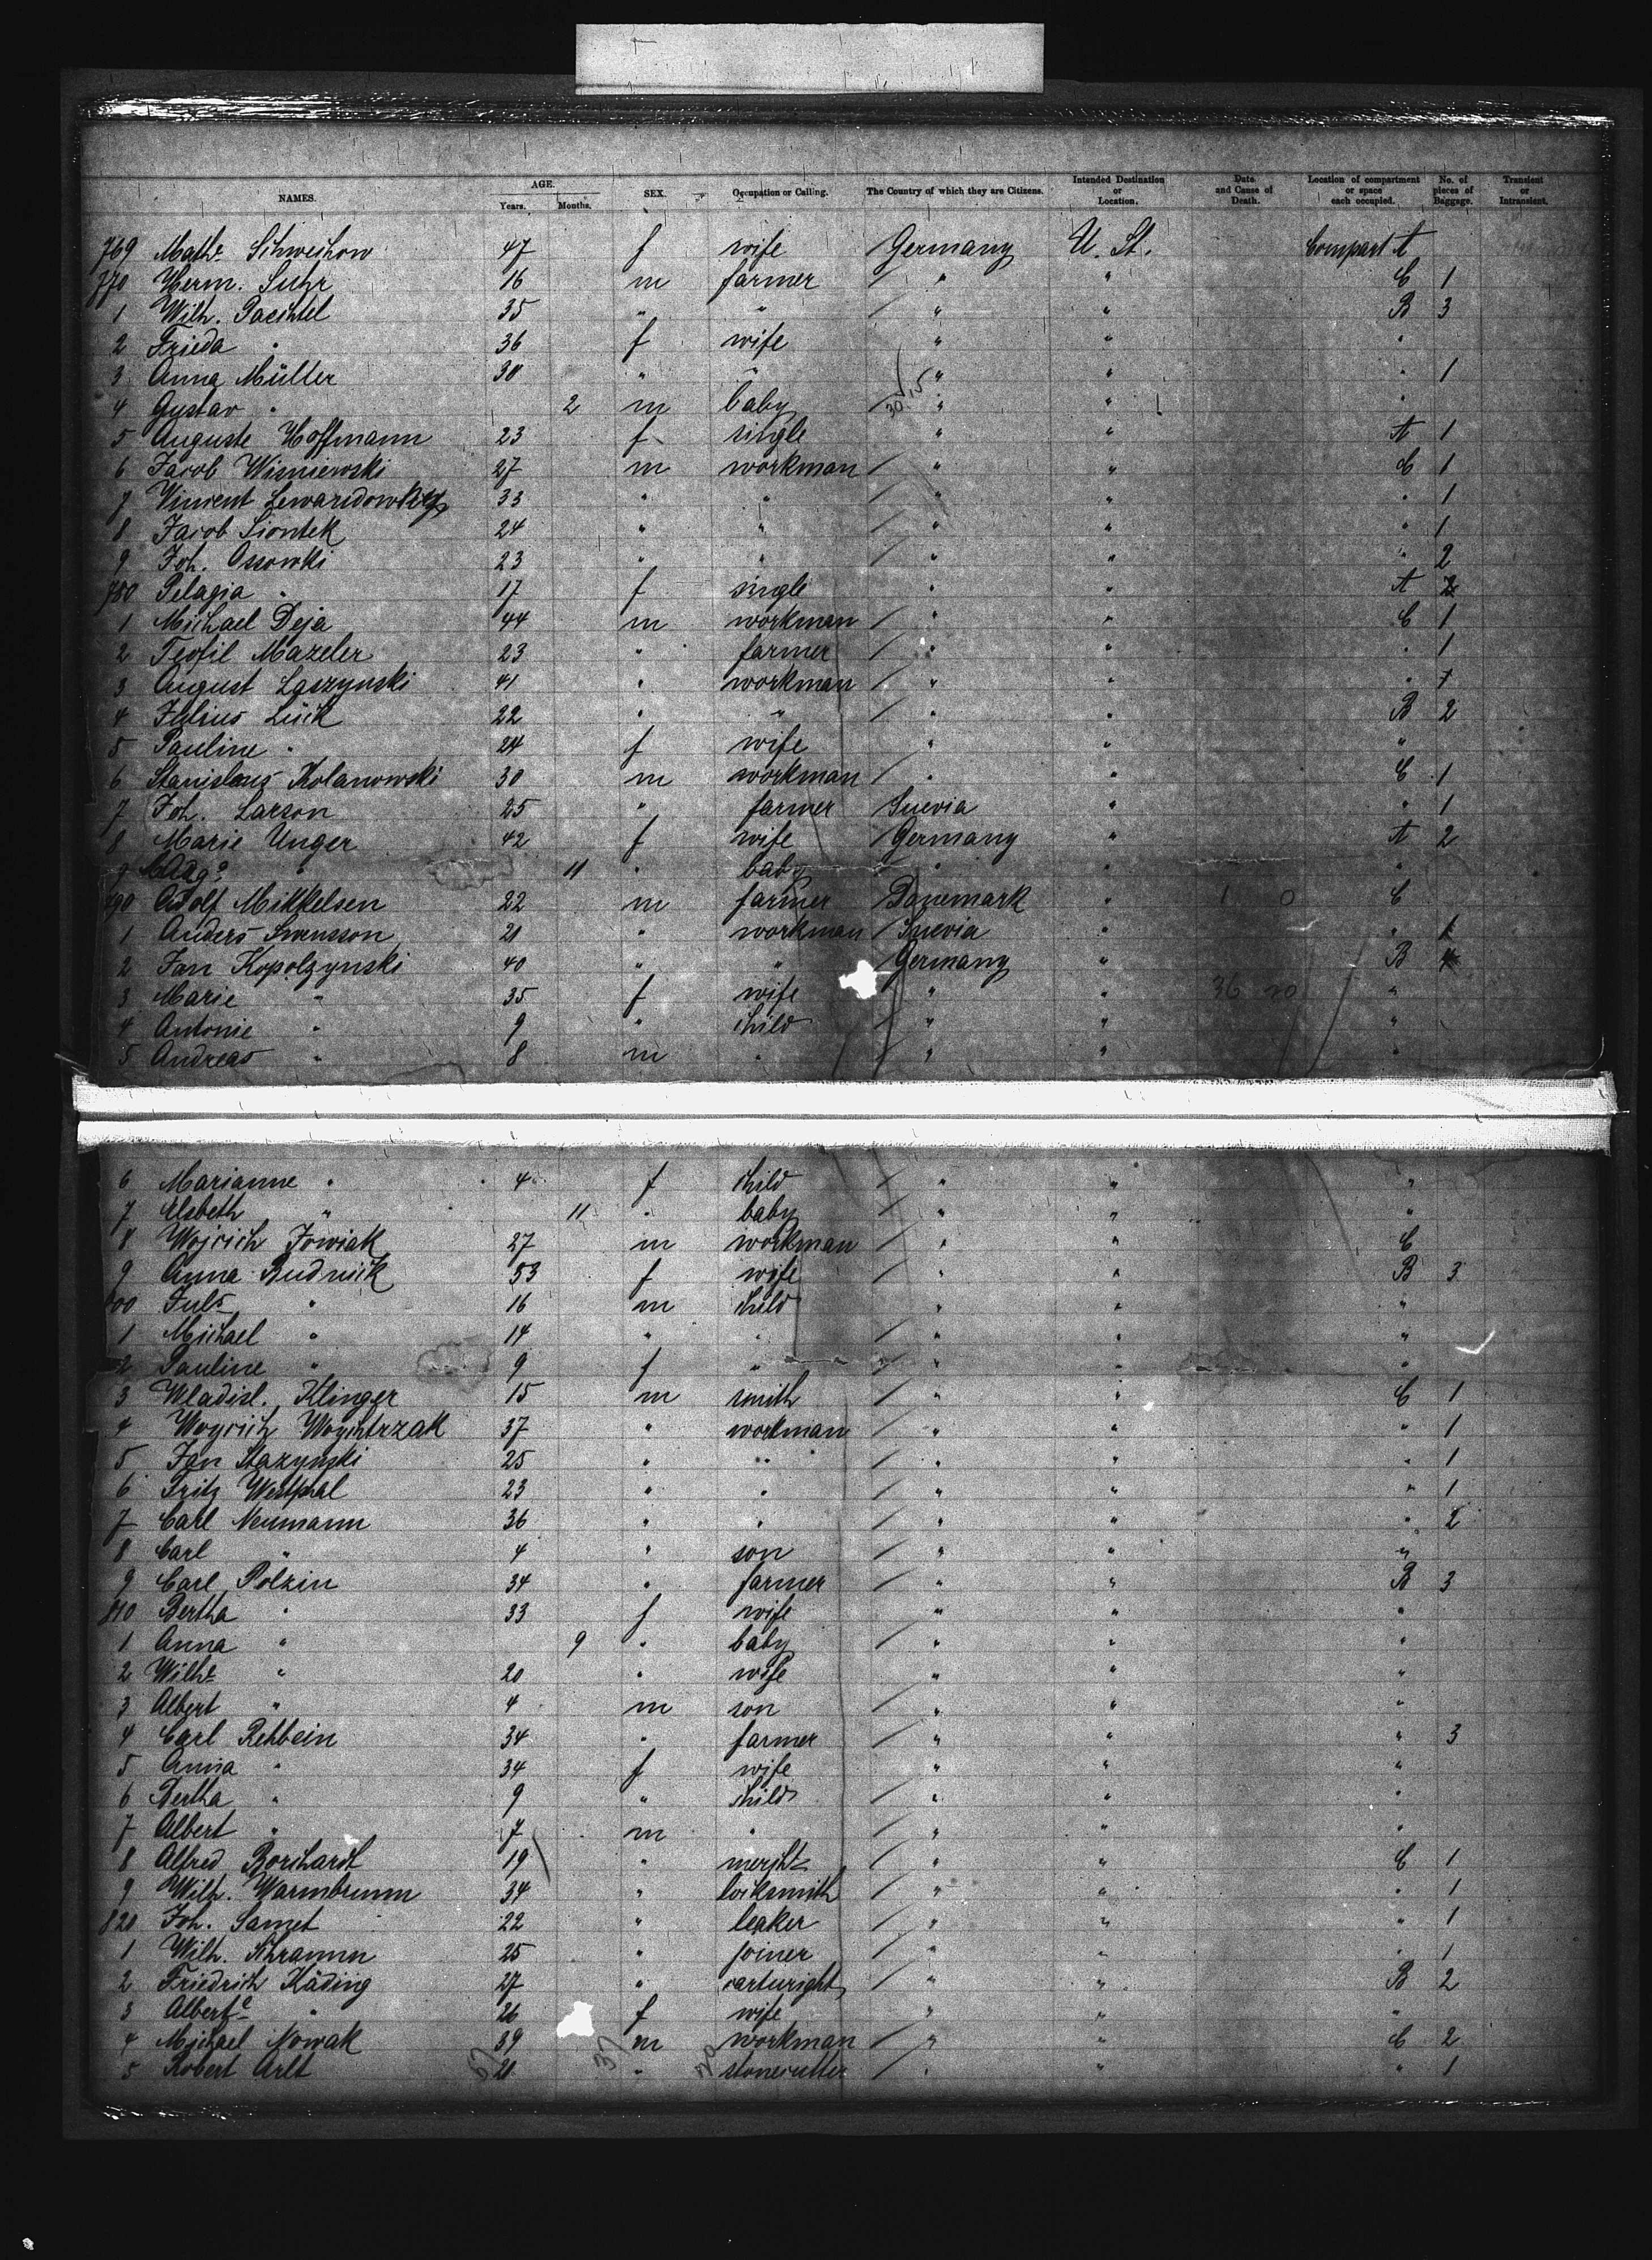 NAMES. AGE. Years. Months. SEX. Occupation or Calling. The Country of which they are Citizens. Intended Destination or Location. Date and Cause of Death. Location of compartment or space each occupied. No. of pieces of Baggage. Transient or Intransient.
769 Mathe Schweihow 47 f wife Germany U. St. Compart A
770 Herm. Suhr 16 m farmer / " " C 1
1 Wilh. Paechtel 35 " " / " " B 3
2 Frieda " 36 f wife " " "
3 Anna Müller 30 " " " " " 1
4 Gustav " 2 m baby / " " "
5 Auguste Hoffmann 23 f single " " A 1
6 Jacob Wisniewski 27 m workman / " " C 1
7 Vincent 33 " " / " " " 1
8 Jacob Siontek 24 " " / " " " 1
9 Joh. Ossowki 23 " " / " " " 2
780 Pelagia " 17 f single " " A
1 Michael Deja 44 m workman / " " C 1
2 Teofil Mazeler 23 " farmer / " " " 1
3 August Laszynski 41 " workman / " " "
4 Julius Lück 22 " " / " " B 2
5 Pauline " 24 f wife " " "
6 Stanislaus Kolanowski 30 m workman / " " C 1
7 Joh. Larson 25 " farmer / Suevia " " 1
8 Marie Unger 42 f wife Germany " A 2
9 " 11 " baby / " " "
790 Adolf Mikkelsen 22 m farmer / Danemark " C
1 Anders Swensson 21 " workman / Suevia " " 1
2 Jan Kopolzynski 40 " " Germany " B
3 Marie " 35 f wife " " "
4 Antonie " 9 " child / " " "
5 Andreas " 8 m " / " " "
6 Marianne " 4 f child / " " "
7 Elsbeth " 11 " baby / " " "
8 Wojcich Jowiak 27 m workman / " " C
9 Anna Rudnick 53 f wife / " " B 3
800 Juls " 16 m child " " "
1 Michael " 14 " " / " " "
2 Pauline " 9 f " / " " "
3 Wladisl. Klinger 15 m smith / " " C 1
4 Woycich Woychtrzak 37 " workman / " " " 1
5 Jan Stazynski 25 " " / " " " 1
6 Fritz Westphal 23 " " / " " " 1
7 Carl Neumann 36 " " / " " " 2
8 Carl " 4 " son / " " "
9 Carl Polzin 34 " farmer / " " B 3
810 Bertha " 33 f wife " " "
1 Anna " 9 " baby / " " "
2 Wilhe " 20 " wife " " "
3 Albert " 4 m son / " " "
4 Carl Rehbein 34 " farmer / " " " 3
5 Anna " 34 f wife " " "
6 Bertha " 9 " child / " " "
7 Albert " 7 m " / " " "
8 Alfred Borchardt 19 " mercht / " " C 1
9 Wilh. Warmbrunn 34 " locksmith / " " " 1
820 Joh. Samet 22 " leaker / " " " 1
1 Wilh. Schramm 25 " joiner / " " " 1
2 Friedrich Käding 27 " cartwright / " " B 2
3 Alberte " 26 f wife " " "
4 Michael Nowak 39 m workman / " " C 2
5 Robert Arlt 20 " stonecutter / " " " 1